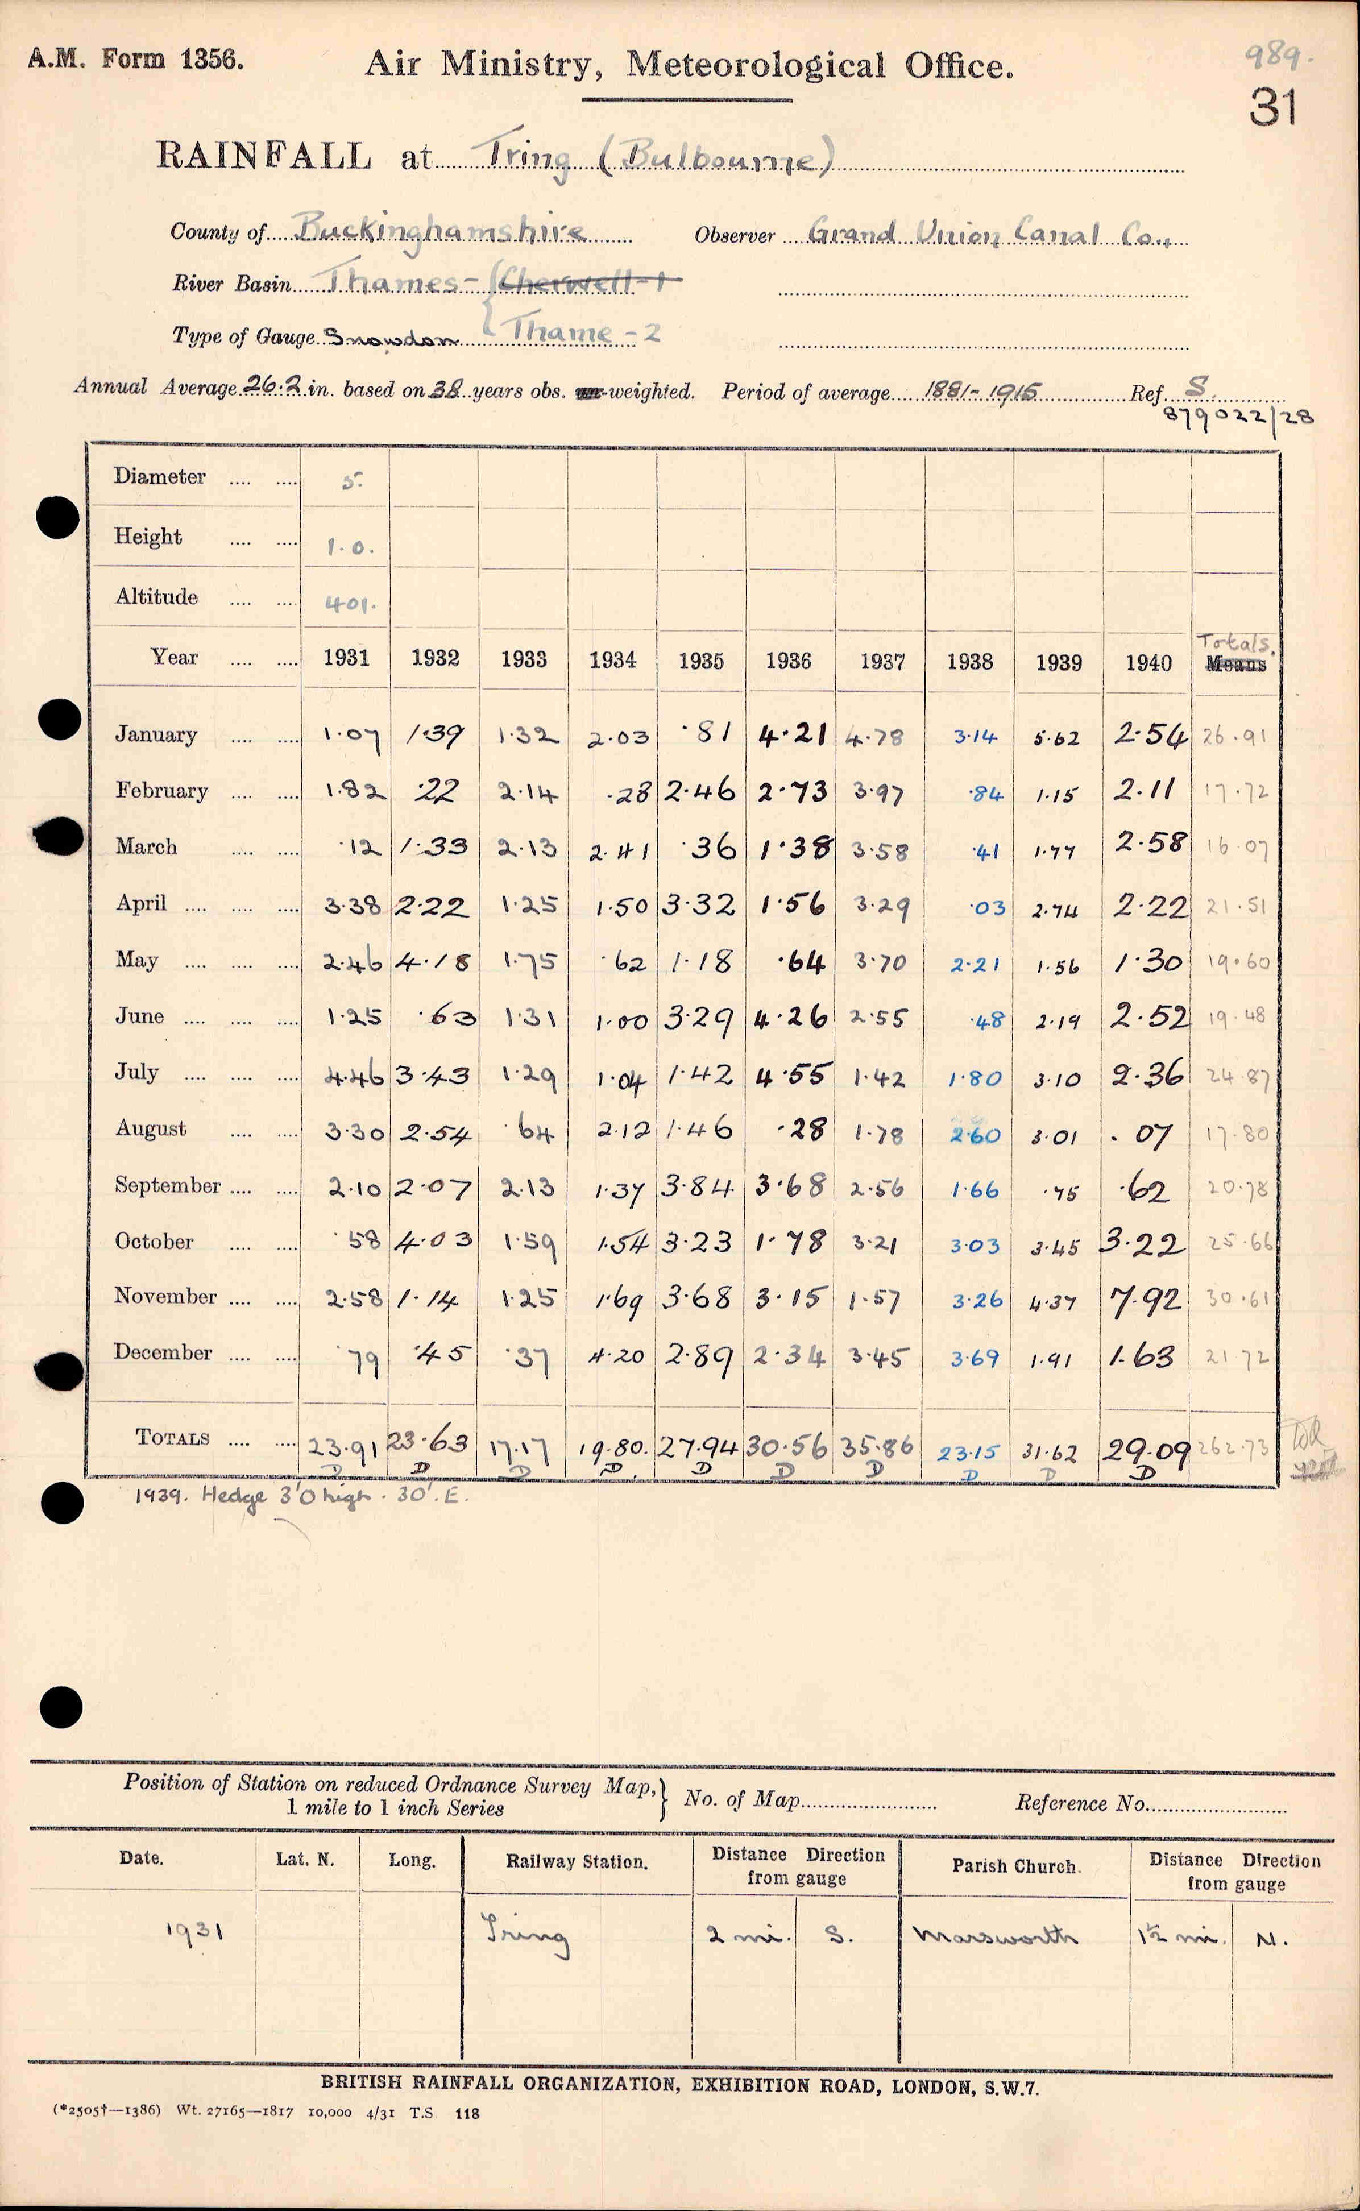 A.M. Form 1356.
Air Ministry, Meteorological Office.
989.
31
RAINFALL at Tring (Bulbourne)
County of Buckinghamshire Observer Grand Union Canal Co.,
River Basin Thames - { Cherwell - 1
Type of Gauge Snowdon Thame - 2
Annual Average 26.2 in. based on 38 years obs. weighted. Period of average 1881-1915 Ref. S.
879022/28
Diameter .... .... 5.
Height .... .... 1.0.
Altitude .... .... 401.
Totals.
Year .... .... 1931 1932 1933 1934 1935 1936 1937 1938 1939 1940 Means
January .... .... 1.07 1.39 1.32 2.03 .81 4.21 4.78 3.14 5.62 2.54 26.91
February .... .... 1.82 .22 2.14 .28 2.46 2.73 3.97 .84 1.15 2.11 17.72
March .... .... .12 1.33 2.13 2.41 .36 1.38 3.58 .41 1.77 2.58 16.07
April .... .... .... 3.38 2.22 1.25 1.50 3.32 1.56 3.29 .03 2.74 2.22 21.51
May .... .... .... 2.46 4.18 1.75 .62 1.18 .64 3.70 2.21 1.56 1.30 19.60
June .... .... .... 1.25 .63 1.31 1.00 3.29 4.26 2.55 .48 2.19 2.52 19.48
July .... .... .... 4.46 3.43 1.29 1.04 1.42 4.55 1.42 1.80 3.10 2.36 24.87
August .... .... 3.30 2.54 .64 2.12 1.46 .28 1.78 2.60 3.01 .07 17.80
September .... .... 2.10 2.07 2.13 1.37 3.84 3.68 2.56 1.66 .75 .62 20.78
October .... .... .58 4.03 1.59 1.54 3.23 1.78 3.21 3.03 3.45 3.22 25.66
November .... .... 2.58 1.14 1.25 1.69 3.68 3.15 1.57 3.26 4.37 7.92 30.61
December .... .... .79 .45 .37 4.20 2.89 2.34 3.45 3.69 1.91 1.63 21.72
TOTALS .... .... 23.91 23.63 17.17 19.80. 27.94 30.56 35.86 23.15 31.62 29.09 262.73
D D D D D D D D D D
1939. Hedge 3'0 high. 30'. E.
Position of Station on reduced Ordnance Survey Map,}
1 mile to 1 inch Series
No. of Map Reference No.
Date. Lat. N. Long. Railway Station. Distance Direction from gauge Parish Church. Distance Direction from gauge
1931 Tring 2 mi. S. Marsworth 1½ mi. N.
BRITISH RAINFALL ORGANIZATION, EXHIBITION ROAD, LONDON, S.W.7.
(*2505†—1386) Wt. 27165—1817 10,000 4/31 T.S 118